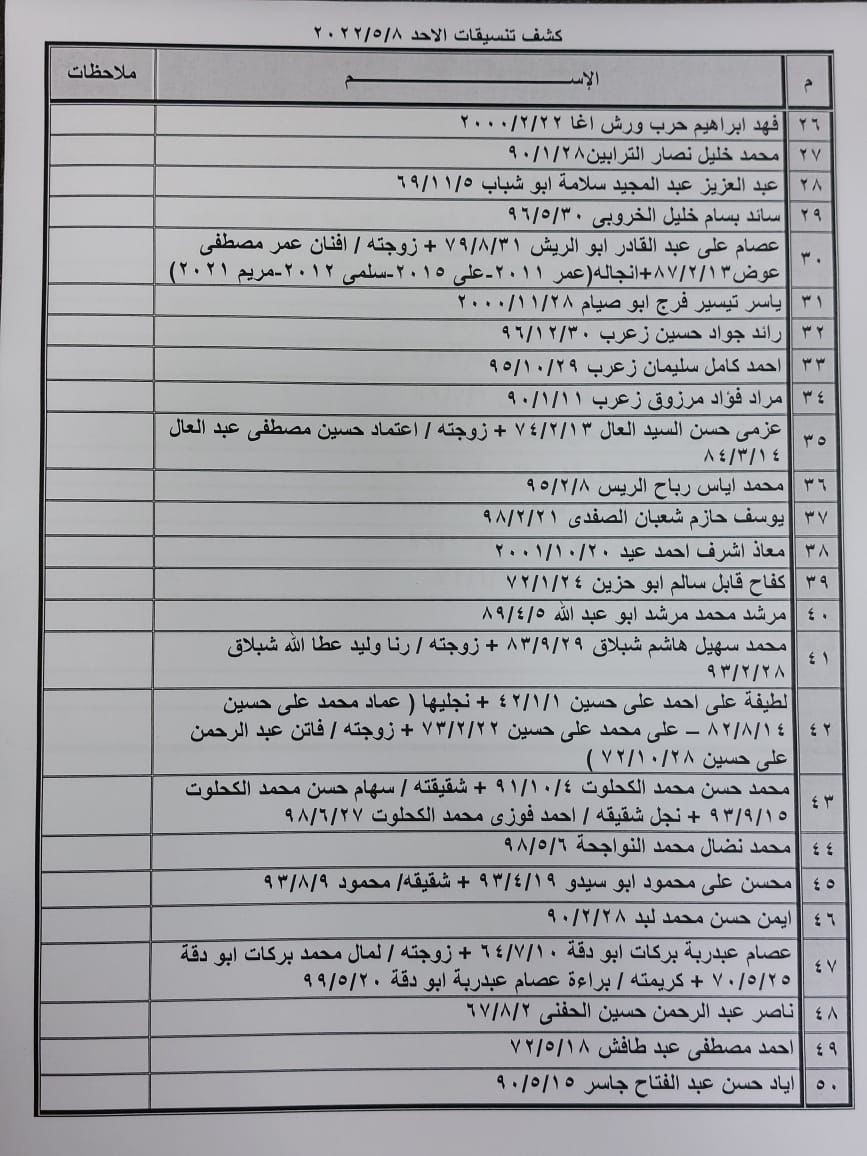 كشف تنسيقات الاحد ٢٠٢٢/٥/٨
م الإســـــــم ملاحظات
٢٦ فهد ابراهيم حرب ورش اغا ٢٠٠٠/٢/٢٢
٢٧ محمد خليل نصار الترابين٩٠/١/٢٨
٢٨ عبد العزيز عبد المجيد سلامة ابو شباب ٦٩/١١/٥
٢٩ سائد بسام خليل الخروبى ٩٦/٥/٣٠
٣٠ عصام على عبد القادر ابو الريش ٧٩/٨/٣١ + زوجته / افنان عمر مصطفى
عوض٨٧/٢/١٣+انجاله(عمر ٢٠١١-على ٢٠١٥-سلمى ٢٠١٢-مريم ٢٠٢١)
٣١ ياسر تيسير فرج ابو صيام ٢٠٠٠/١١/٢٨
٣٢ رائد جواد حسين زعرب ٩٦/١٢/٣٠
٣٣ احمد كامل سليمان زعرب ٩٥/١٠/٢٩
٣٤ مراد فؤاد مرزوق زعرب ٩٠/١/١١
٣٥ عزمى حسن السيد العال ٧٤/٢/١٣ + زوجته / اعتماد حسين مصطفى عبد العال
٨٤/٣/١٤
٣٦ محمد اياس رباح الريس ٩٥/٢/٨
٣٧ يوسف حازم شعبان الصفدى ٩٨/٢/٢١
٣٨ معاذ اشرف احمد عيد ٢٠٠١/١٠/٢٠
٣٩ كفاح قابل سالم ابو حزين ٧٢/١/٢٤
٤٠ مرشد محمد مرشد ابو عبد الله ٨٩/٤/٥
٤١ محمد سهيل هاشم شبلاق ٨٣/٩/٢٩ + زوجته / رنا وليد عطا الله شبلاق
٩٣/٢/٢٨
٤٢ لطيفة على احمد على حسين ٤٢/١/١ + نجليها ( عماد محمد على حسين
٨٢/٨/١٤ – على محمد على حسين ٧٣/٢/٢٢ + زوجته / فاتن عبد الرحمن
على حسين ٧٢/١٠/٢٨ )
٤٣ محمد حسن محمد الكحلوت ٩١/١٠/٤ + شقيقته / سهام حسن محمد الكحلوت
٩٣/٩/١٥ + نجل شقيقه / احمد فوزى محمد الكحلوت ٩٨/٦/٢٧
٤٤ محمد نضال محمد النواجحة ٩٨/٥/٦
٤٥ محسن على محمود ابو سيدو ٩٣/٤/١٩ + شقيقه/ محمود ٩٣/٨/٩
٤٦ ايمن حسن محمد لبد ٩٠/٢/٢٨
٤٧ عصام عبدربة بركات ابو دقة ٦٤/٧/١٠ + زوجته / لمال محمد بركات ابو دقة
٧٠/٥/٢٥ + كريمته / براءة عصام عبدربة ابو دقة ٩٩/٥/٢٠
٤٨ ناصر عبد الرحمن حسين الحفنى ٦٧/٨/٢
٤٩ احمد مصطفى عبد طافش ٧٢/٥/١٨
٥٠ اياد حسن عبد الفتاح جاسر ٩٠/٥/١٥